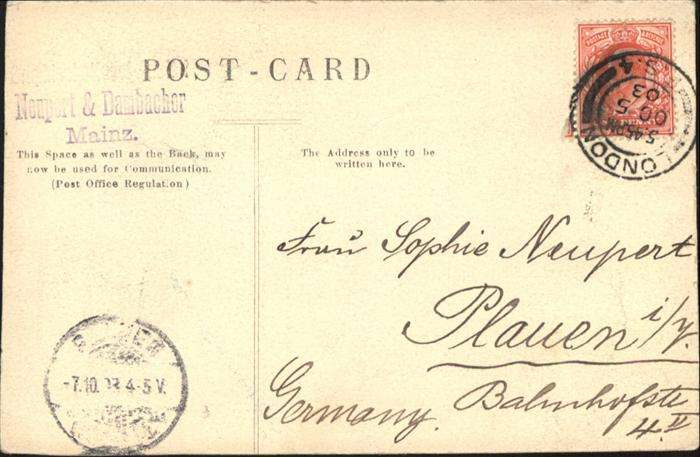 POST-CARD
Neupert & Dambacher
Mainz.
This Space as well as the Back, may
now be used for Communication.
(Post Office Regulation)
The Address only to be
written here.
POSTAGE & REVENUE
LONDON
5.45PM
OC 5
03
S. 4
Frau Sophie Neupert
Plauen i/V.
Germany. Bahnhofstr
4. II
-7.10.03 4-5 V.